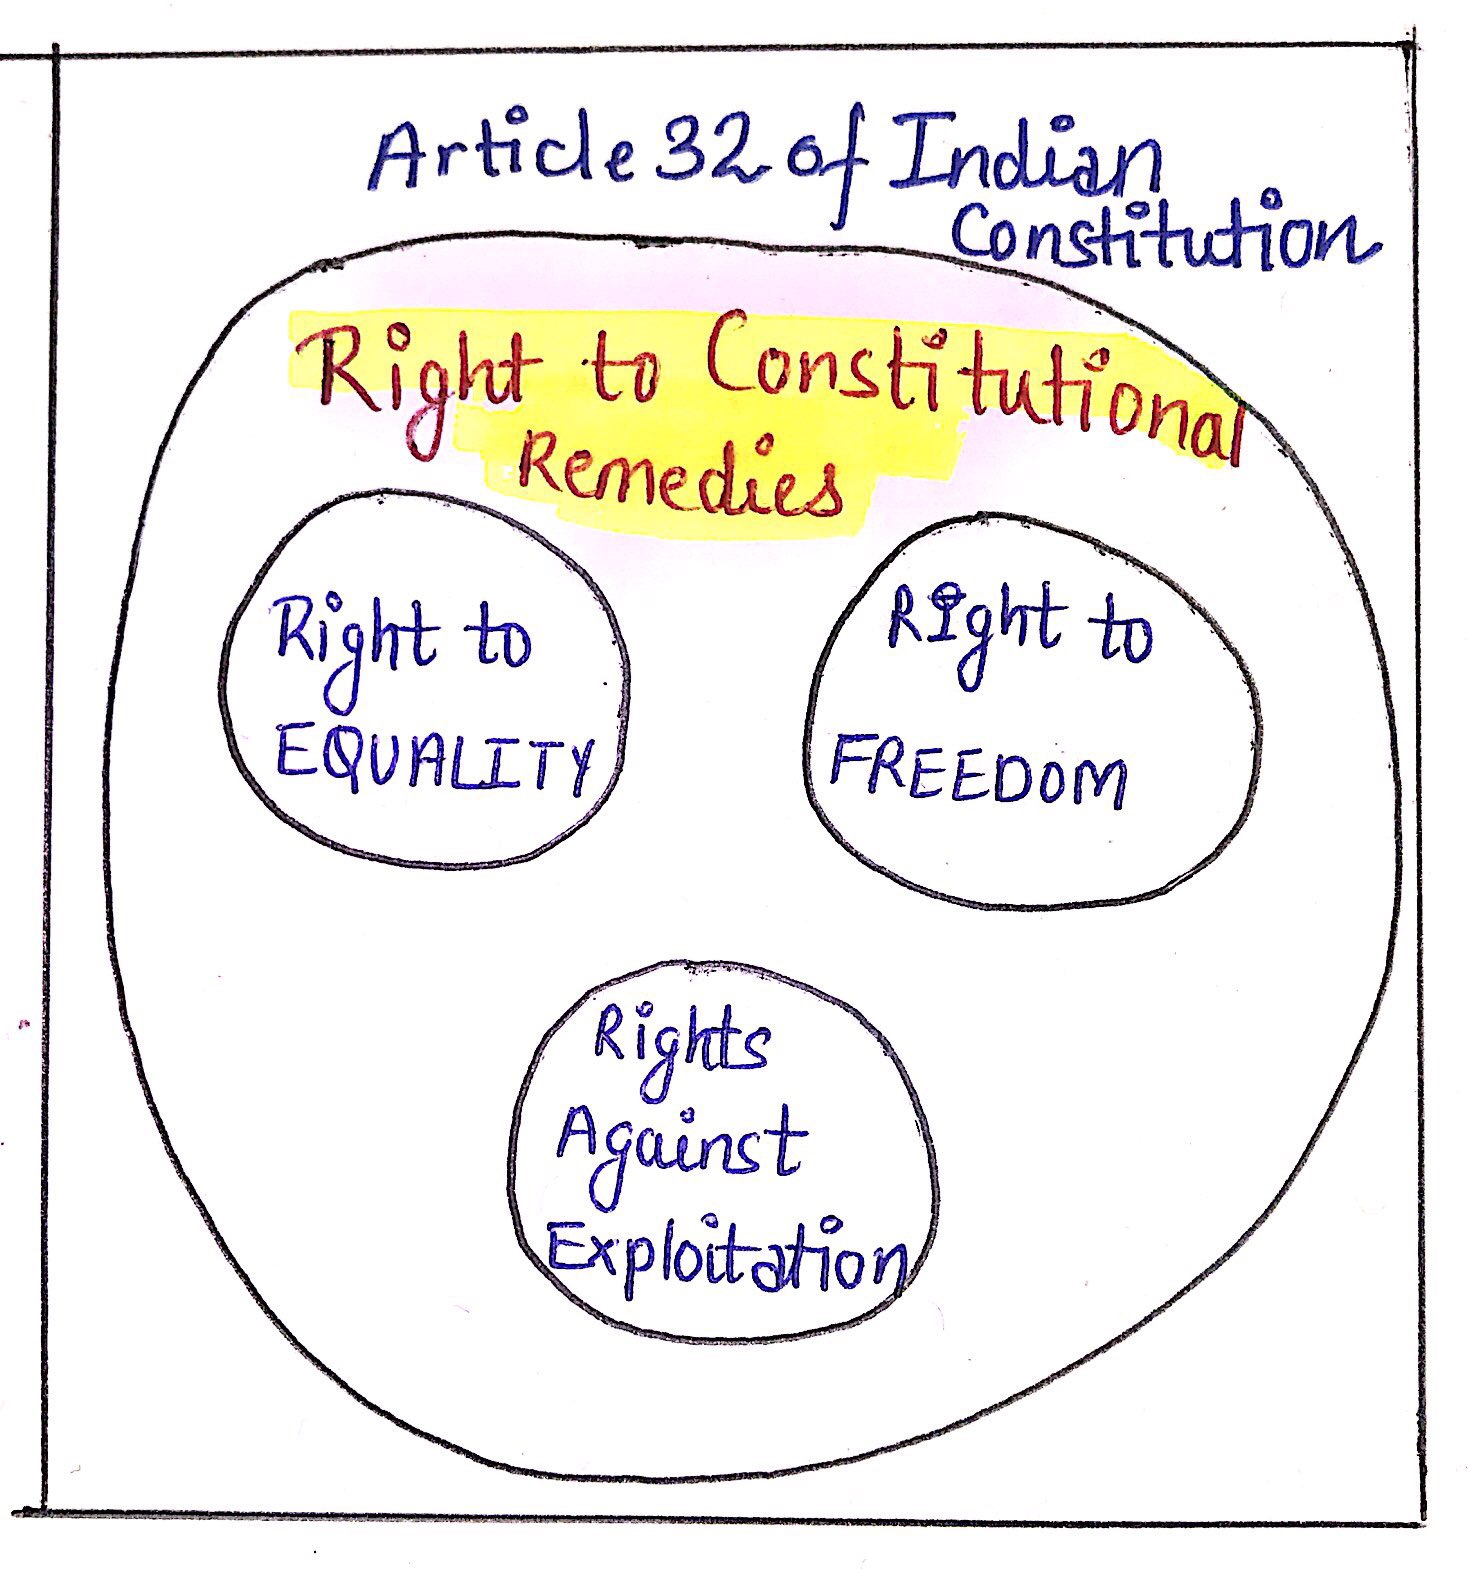 Article 32 of Indian
Constitution
Right to Constitutional
Remedies
Right to
EQUALITY
RIght to
FREEDOM
Rights
Against
Exploitation